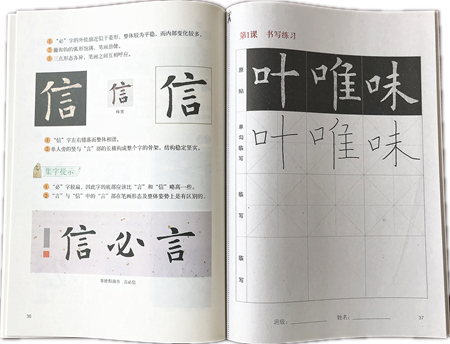 ①“必”字的外轮廓近似于菱形,整体较为平稳,而内部变化较多。
②撇和钩的弧形饱满,笔画劲健。
③三点形态各异,笔画之间互相呼应。
信
信
信
①“信”字左右错落而整体和谐。
②单人旁的竖与“言”部的长横构成整个字的骨架,结构稳定坚实。
集字提示
①“必”字较扁,因此字的底部应该比“言”和“信”略高一些。
②“言”与“信”中的“言”部在笔画形态及整体姿势上是有区别的。
信必言
36
第1课 书写练习
原帖
叶唯味
单勾临写
叶唯味
临写
临写
班级:
姓名:
37